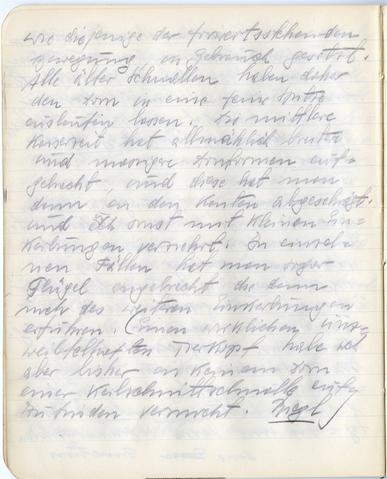 wie diejenige der frontsstehenden
Bewegung im Gebrauch gestört.
Alle älter Schnallen haben daher
den Dorn in eine feine Spitze
auslaufen lassen. Die mittlere
Kaiserzeit hat allmählich breite
und massigere Dornformen auf-
gebracht, und diese hat man
dann an den Kanten abgeschrägt
und sonst mit kleinen Ein-
kerbungen verziert. In einzel-
nen Fällen hat man sogar
Flügel angebracht die dann
noch des weiteren Einkerbungen
erfuhren. Einen wirklichen unz-
weifelhaften Tierkopf habe ich
aber bisher an keinem Dorn
einer Keilschnittschnalle aufzu-
finden vermocht. Riegl